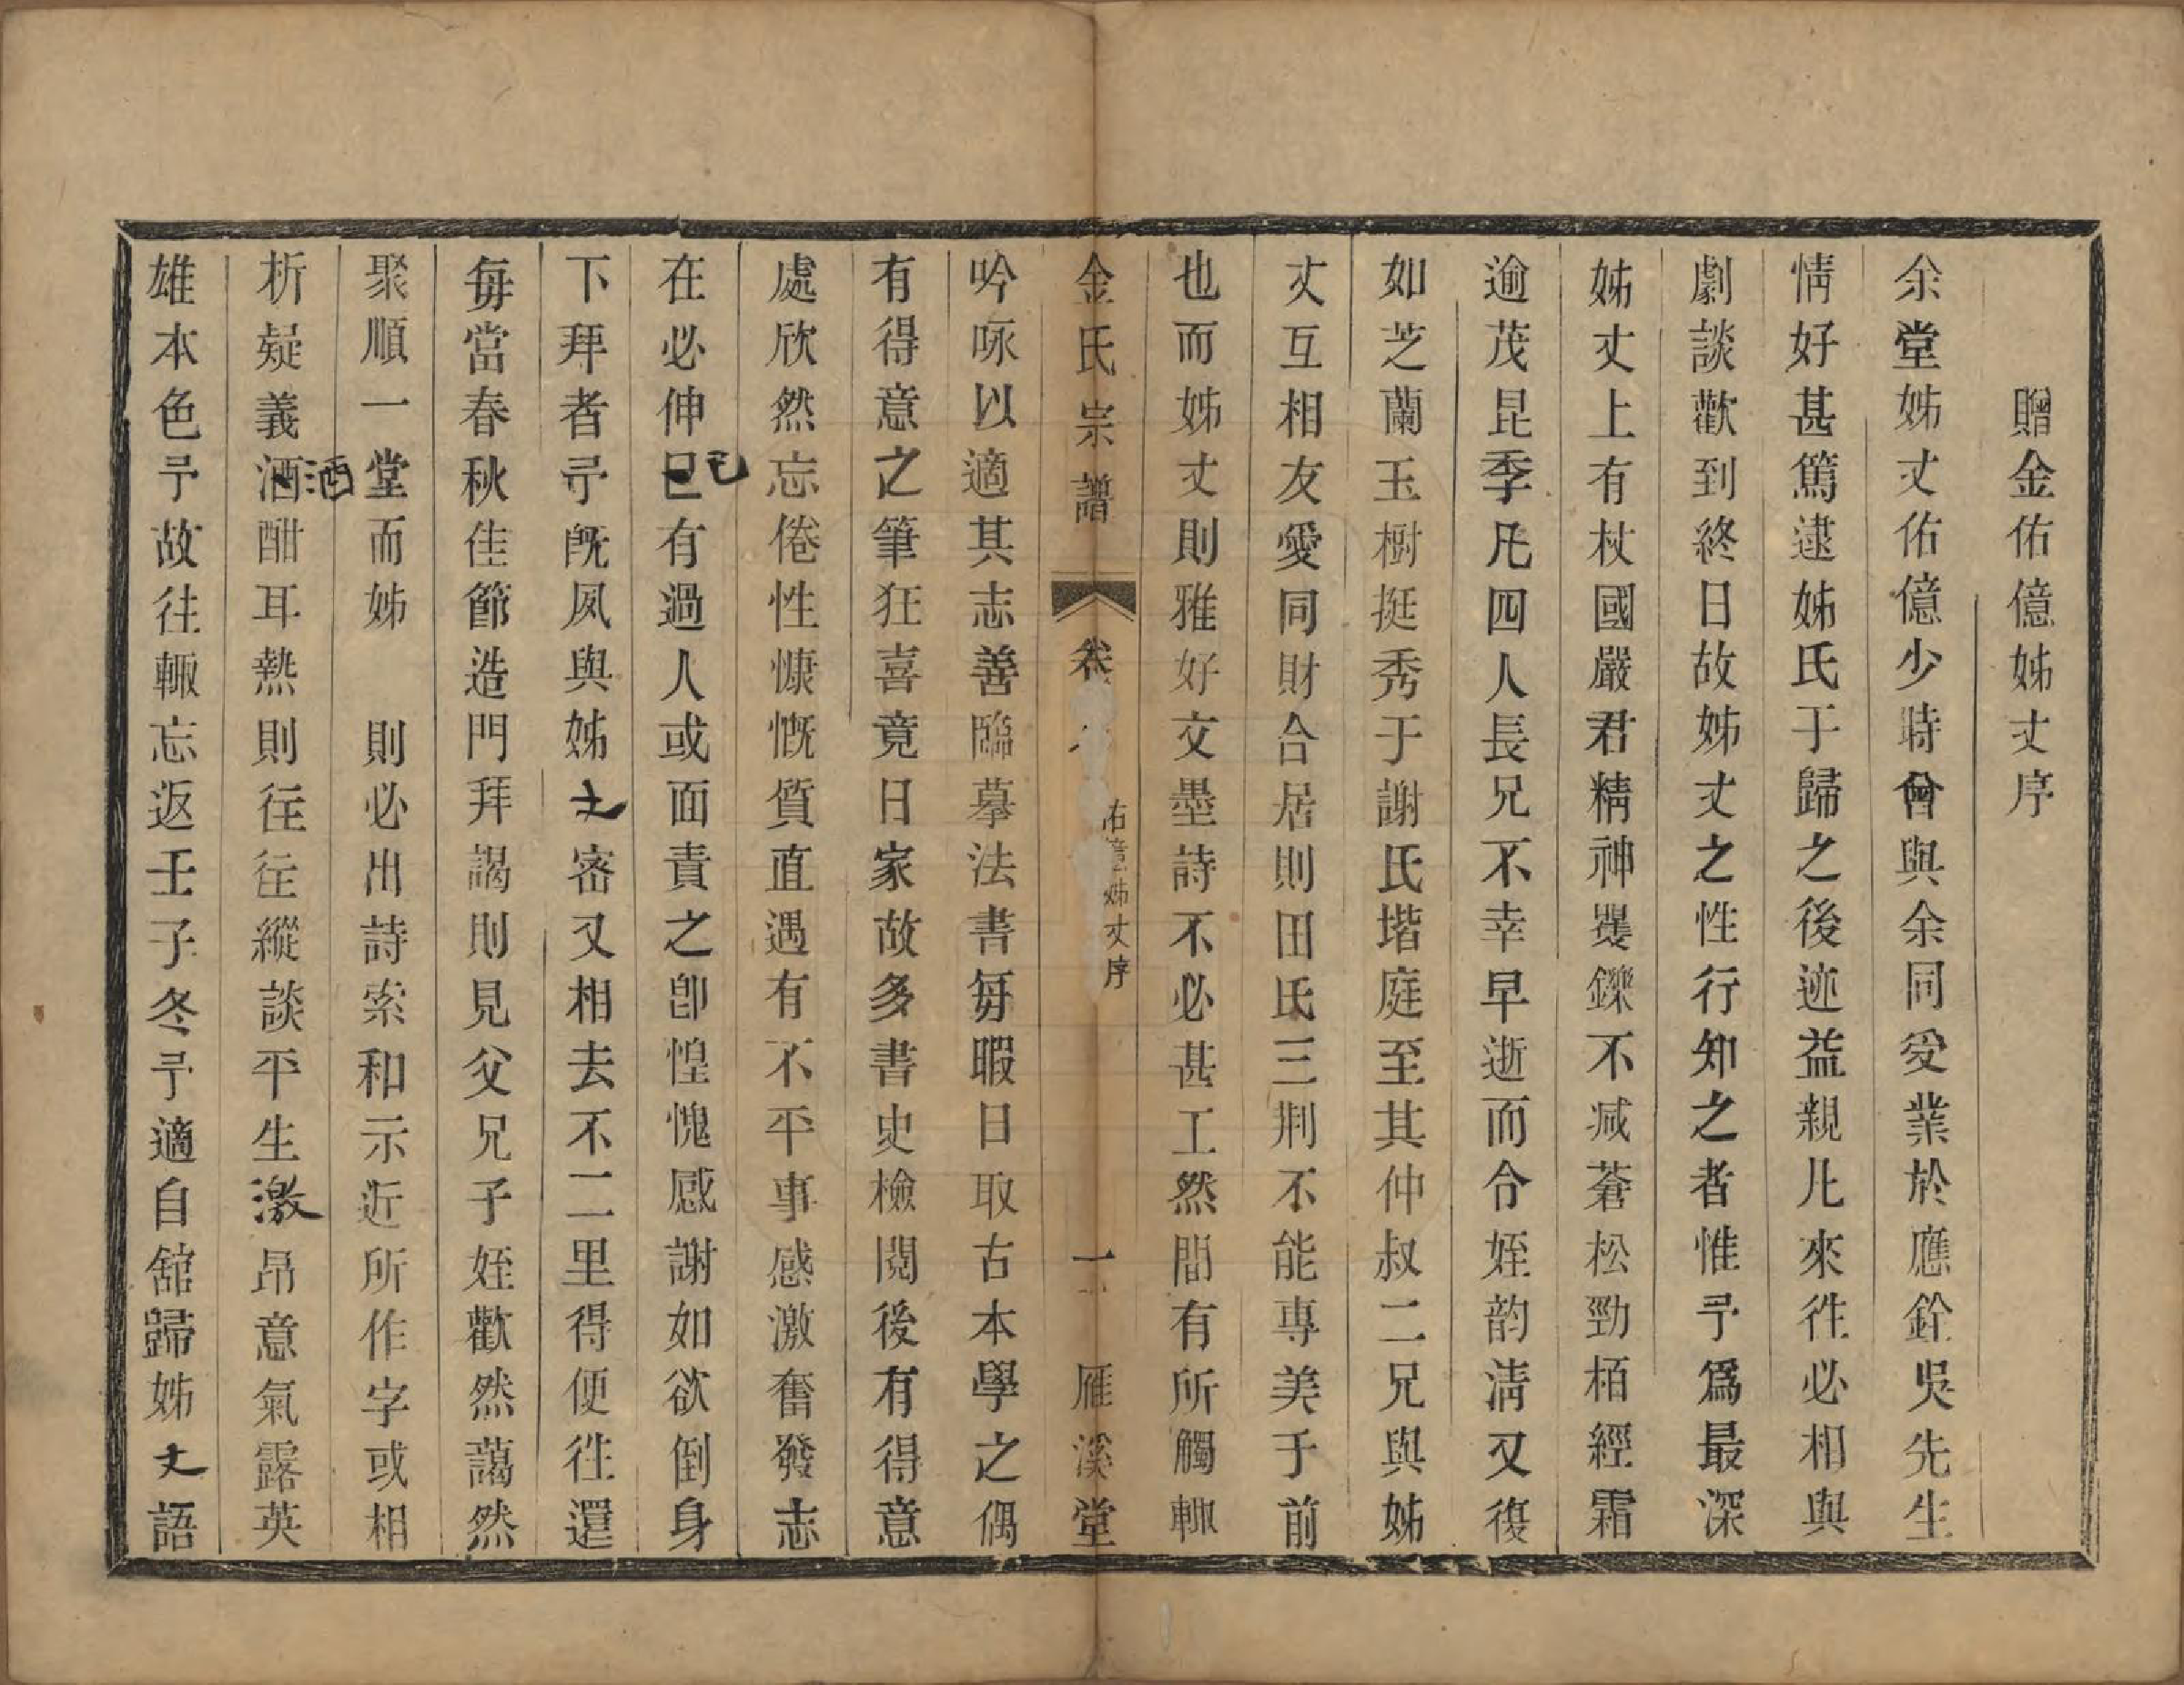 贈金佑億姊丈序
余堂姊丈佑億少時會與余同受業於應銓吳先生
情好甚篤逮姊氏于歸之後迹益親凡來徃必相與
劇談歡到終日故姊丈之性行知之者惟予爲最深
姊丈上有杖國嚴君精神矍鑠不减蒼松勁栢經霜
逾茂昆季凡四人長兄不幸早逝而令姪韵淸又復
如芝蘭玉樹挺秀于謝氏堦庭至其仲叔二兄與姊
丈互相友愛同財合居則田氏三荆不能專美于前
也而姊丈則雅好文墨詩不必甚工然間有所觸輙
金氏宗譜 卷 佑億姊丈序 一 雁溪堂
吟咏以適其志善臨摹法書毎暇日取古本學之偶
有得意之筆狂喜竟日家故多書史檢閱後有得意
處欣然忘倦性慷慨質直遇有不平事感激奮發志
在必伸已有過人或面責之卽惶愧感謝如欲倒身
下拜者予旣夙與姊丈密又相去不二里得便徃還
毎當春秋佳節造門拜謁則見父兄子姪歡然藹然
聚順一堂而姊　則必出詩索和示近所作字或相
析疑義酒酣耳熱則徃徃縱談平生激昂意氣露英
雄本色予故徃輙忘返壬子冬予適自舘歸姊丈語